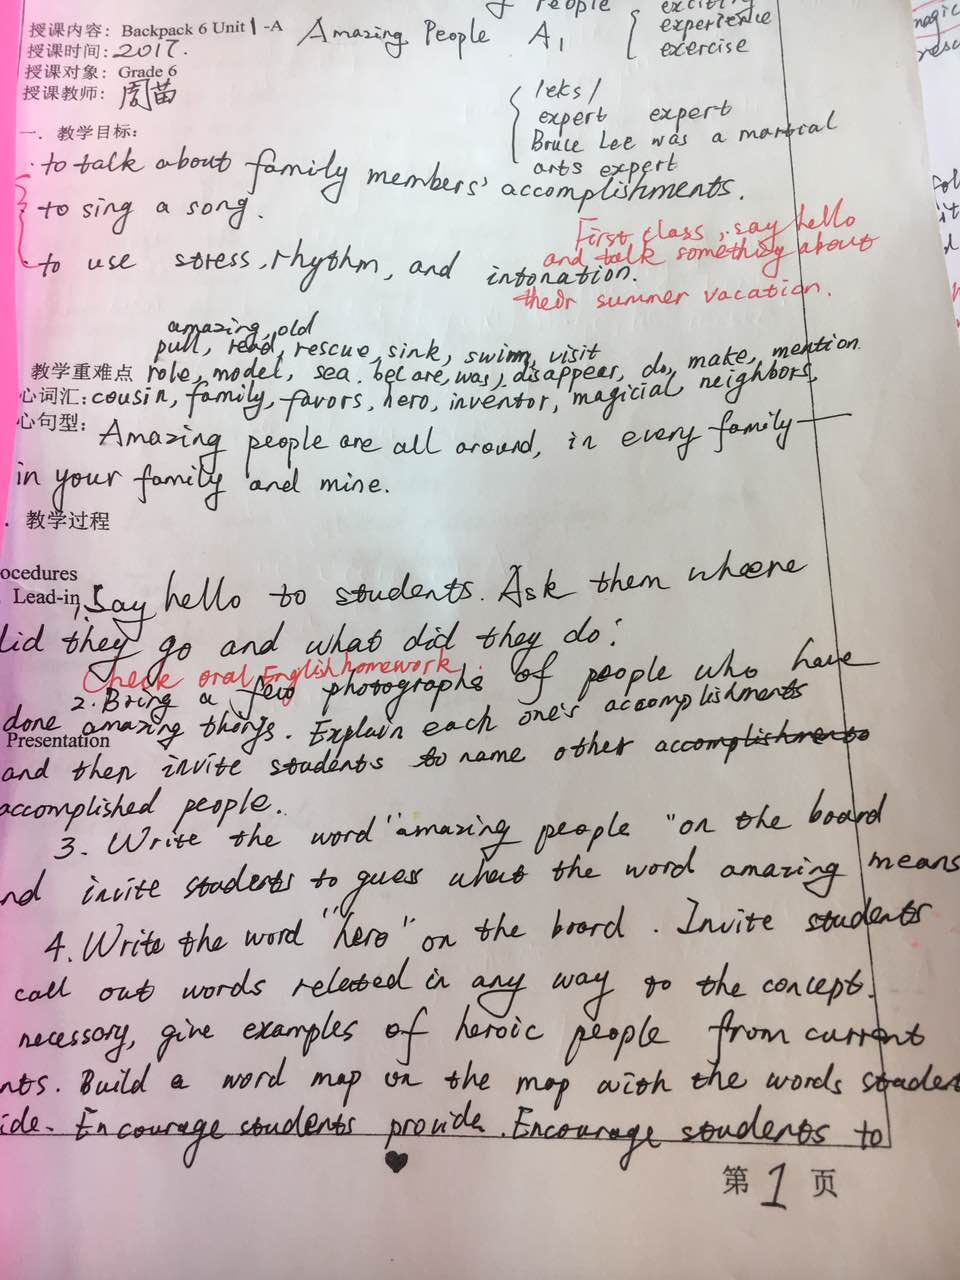 People
exciting
授课内容: Backpack 6 Unit 1 -A Amazing People A1
experience
exercise
授课时间: 2017.
授课对象: Grade 6
授课教师: 周苗
/eks/
expert expert
Bruce Lee was a martial
arts expert
一. 教学目标:
· to talk about family members' accomplishments.
to sing a song.
to use stress, rhythm, and intonation.
First class, say hello
and talk something about
their summer vacation.
amazing, old
pull, read, rescue, sink, swim, visit
教学重难点 role, model, sea. be(are, was), disappear, do, make, mention
心词汇: cousin, family, favors, hero, inventor, magicial neighbors,
心句型: Amazing people are all around, in every family—
in your family and mine.
. 教学过程
ocedures
Lead-in 1, Say hello to students. Ask them where
did they go and what did they do?
Check oral English homework.
2. Bring a few photographs of people who have
done amazing things. Explain each one's accomplishments
Presentation
and then invite students to name other accomplishments
accomplished people.
3. Write the word "amazing people" on the board
nd invite students to guess what the word amazing means
4. Write the word "hero" on the board. Invite students
call out words related in any way to the concept.
necessary, give examples of heroic people from current
nts. Build a word map on the map with the words student
ide. Encourage students provide. Encourage students to
第 1 页
magic
resc